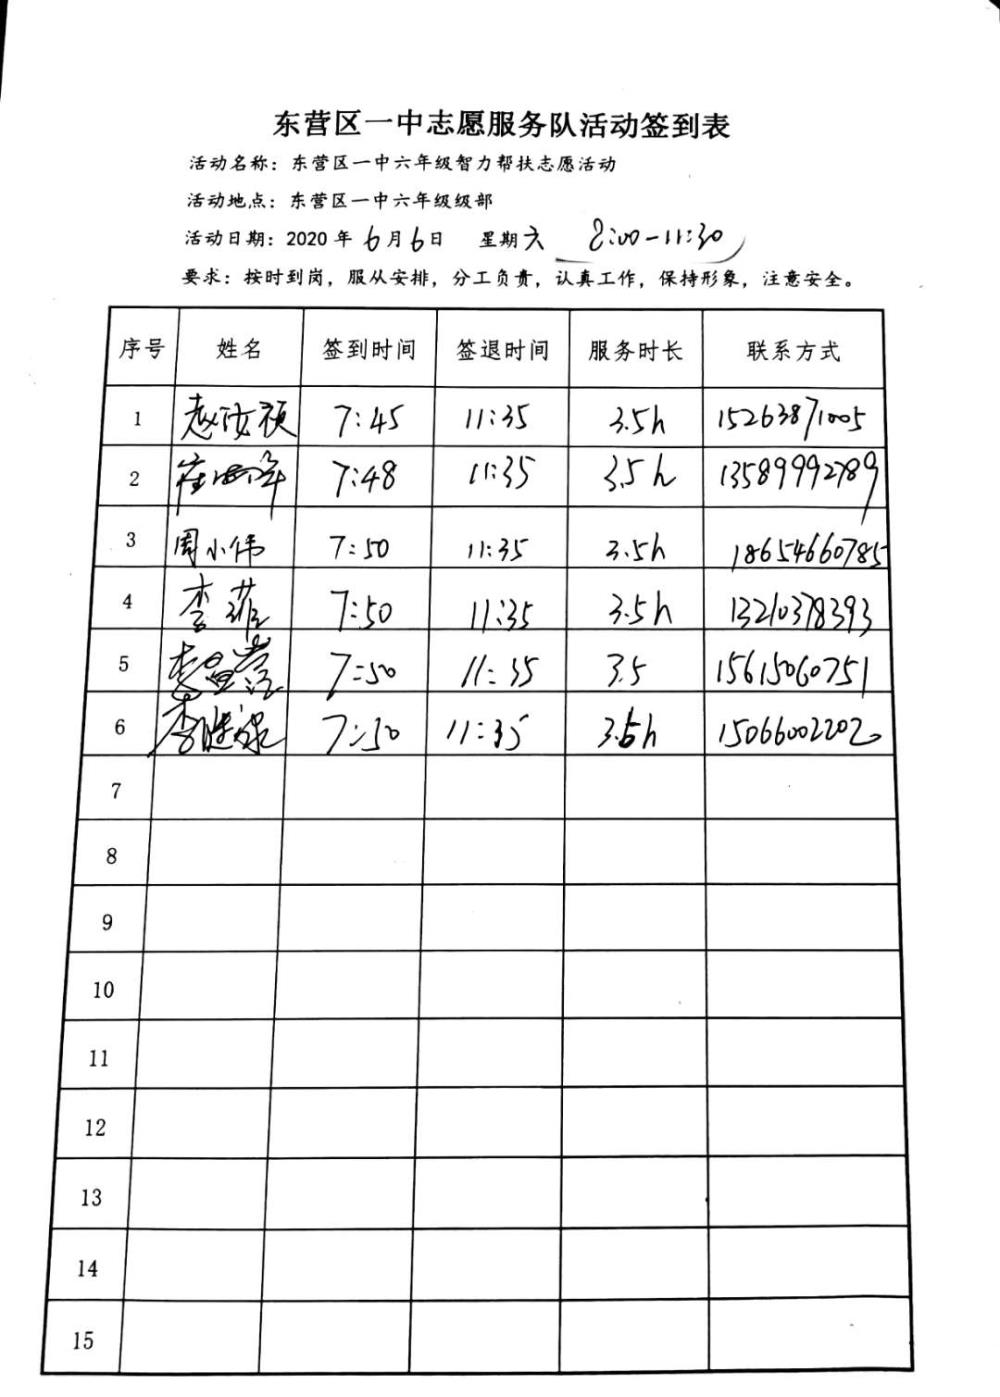 东营区一中志愿服务队活动签到表
活动名称：东营区一中六年级智力帮扶志愿活动
活动地点：东营区一中六年级级部
活动日期：2020 年 6月6日 星期六 8:00-11:30
要求：按时到岗，服从安排，分工负责，认真工作，保持形象，注意安全。
序号 姓名 签到时间 签退时间 服务时长 联系方式
1 赵 7:45 11:35 3.5h 15263871005
2 崔 7:48 11:35 3.5h 13589992789
3 周小伟 7:50 11:35 3.5h 18654660785
4 李菲 7:50 11:35 3.5h 13210378393
5 李 7:50 11:35 3.5 15615060751
6 李 7:50 11:35 3.5h 15066002202
7
8
9
10
11
12
13
14
15